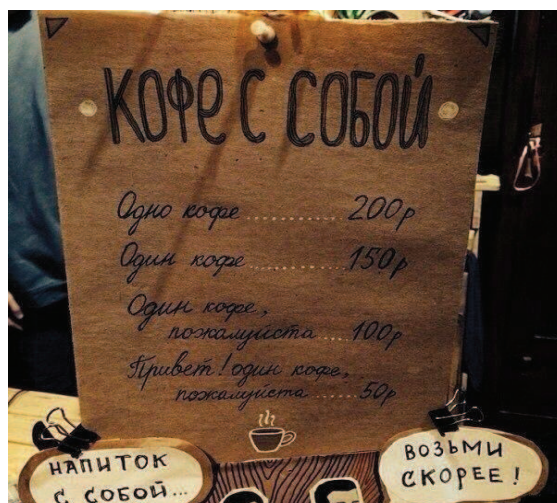 КОФЕ С СОБОЙ
Одно кофе .......... 200р
Один кофе .......... 150р
Один кофе,
пожалуйста ..... 100р
Привет! один кофе,
пожалуйста ..... 50р
НАПИТОК
С СОБОЙ...
ВОЗЬМИ
СКОРЕЕ!